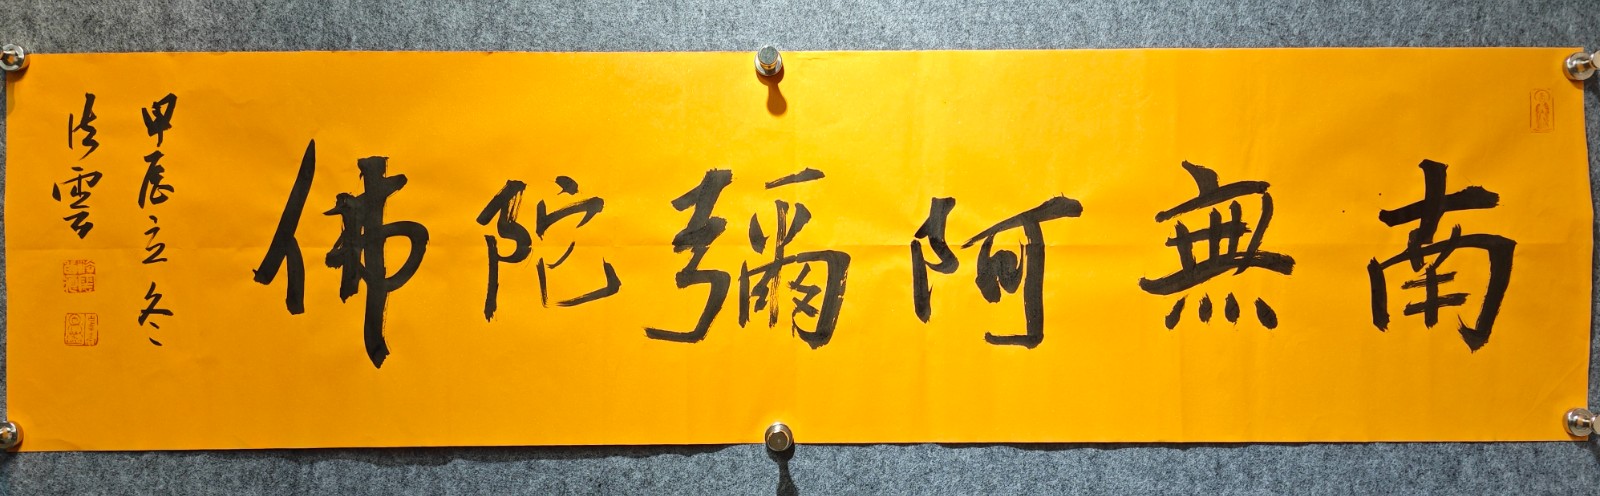 南無阿彌陀佛
甲辰立冬
法雲